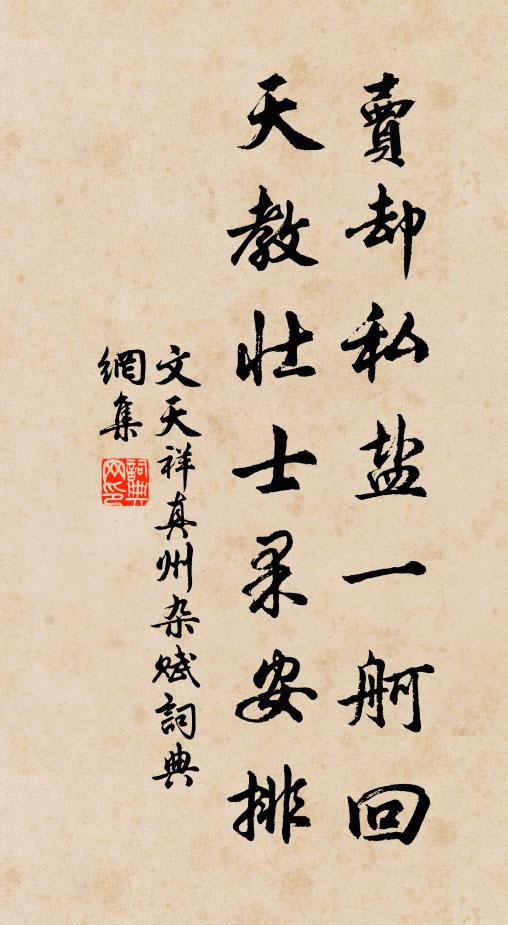 賣却私盐一舸回
天教壮士果安排
文天祥真州杂赋詞典
網集
詞典
网印